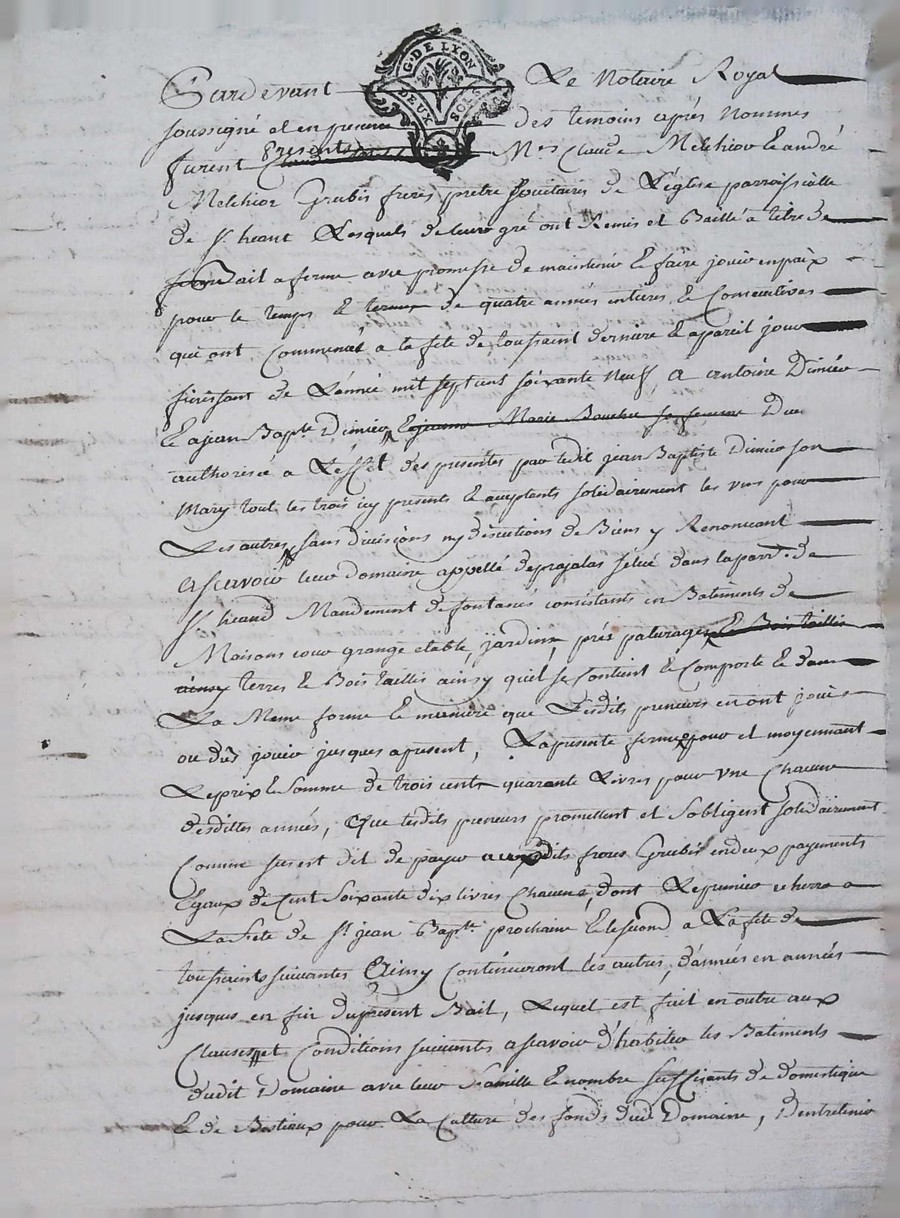 G. DE LYON
DEUX SOLS
Pardevant Le Notaire Royal
soussigné et en presence des temoins après Nommes
furent presents Mes Claude Melchior et andré
Melchior Grubis freres pretre socitaires de L'église parroissialle
de st heant Lesquels de leur gré ont Remis et Baillé a titre de
Bail a ferme avec promesse de maintenir et faire jouir en paix
pour le temps et terme de quatre années entieres et Consecutives
qui ont Commencé a la fete de toussaint derniere et a pareil jour
finissant de L'année mil sept cens soixante neuf, a antoine Dimier
et a jean Bapte Dimier, et Marie Bouchu sa femme Due
authorisée a L'effet des presentes par ledit jean Baptiste Dimier son
Mary tout les trois icy presents et acceptants solidairement les uns pour
Les autres, sans divisions ny discutions de Biens y Renoncant
ascavoir leur domaine appellé situé dans la parr. de
st heand Mandement de fontanés consistants en Batiments de
Maisons cour grange etable, jardins, prés paturages, et Bois taillis
ainsy terres et Bois taillis ainsy quil se Contient et Comporte et dans
La Meme forme et maniere que Lesdits preneurs en ont jouis
ou dus jouir jusques apresent, La presente ferme pour et moyennant
Le prix et somme de trois cents quarante Livres pour une Chacune
desdittes années, Que lesdits preneurs promettent et S'obligent solidairement
Comme sus est dit de payer auxdits freres Grubis en deux payments
Egaux de Cent Soixante dix livres Chacune, dont Le premier echerra a
La fete de st jean Bapte prochaine et le second a La fete de
toussaints suivantes Ainsy Continueront les autres, d'années en années
jusques en fin du present Bail, Lequel est fait en outre aux
Clauses et Conditions suivants ascavoir d'habiter les Batiments
dudit Domaine avec leur famille et nombre suffisants de domestique
et de Bestiaux pour La Culture des fonds dud Domaine, D'entretenir